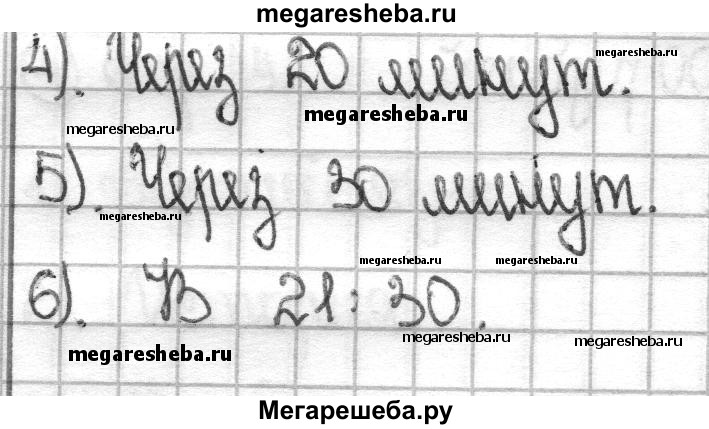 megaresheba.ru
4). Через 20 минут.
megaresheba.ru
megaresheba.ru
megaresheba.ru
5). Через 30 минут.
megaresheba.ru
megaresheba.ru megaresheba.ru
6). В 21:30.
megaresheba.ru
megaresheba.ru
megaresheba.ru
Мегарешеба.ру